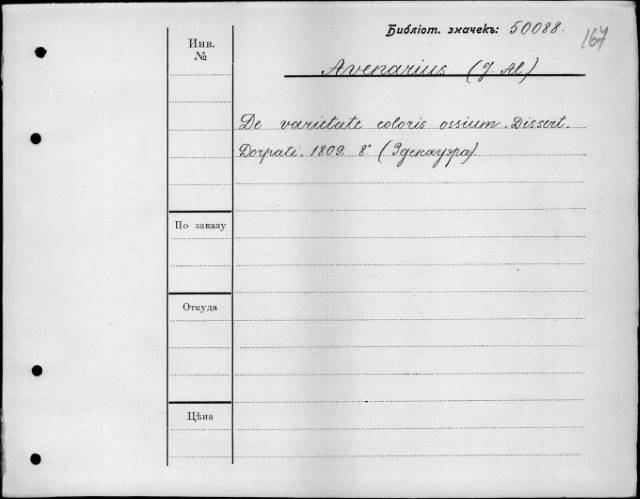 Библіот. значекъ: 50088.
167
Инв.
№
Avenarius (J. Al)
De varietate coloris ossium. Dissert.
Dorpati. 1809. 8° (Здекауэра)
По заказу
Откуда
Цѣна